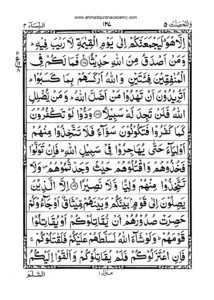 www.ahmadquranacademy.com
النسآء ٤
١٢٤
والمحصنت ٥
اِلَّا هُوَ لَيَجْمَعَنَّكُمْ اِلٰى يَوْمِ الْقِيٰمَةِ لَا رَيْبَ فِيْهِ
وَمَنْ اَصْدَقُ مِنَ اللهِ حَدِيْثًا فَمَا لَكُمْ فِى
الْمُنٰفِقِيْنَ فِئَتَيْنِ وَاللهُ اَرْكَسَهُمْ بِمَا كَسَبُوْا
اَتُرِيْدُوْنَ اَنْ تَهْدُوْا مَنْ اَضَلَّ اللهُ وَمَنْ يُّضْلِلِ
اللهُ فَلَنْ تَجِدَ لَهٗ سَبِيْلًا وَدُّوْا لَوْ تَكْفُرُوْنَ
كَمَا كَفَرُوْا فَتَكُوْنُوْنَ سَوَآءً فَلَا تَتَّخِذُوْا مِنْهُمْ
اَوْلِيَآءَ حَتّٰى يُهَاجِرُوْا فِىْ سَبِيْلِ اللهِ فَاِنْ تَوَلَّوْا
فَخُذُوْهُمْ وَاقْتُلُوْهُمْ حَيْثُ وَجَدْتُّمُوْهُمْ وَلَا
تَتَّخِذُوْا مِنْهُمْ وَلِيًّا وَّلَا نَصِيْرًا اِلَّا الَّذِيْنَ
يَصِلُوْنَ اِلٰى قَوْمٍ بَيْنَكُمْ وَبَيْنَهُمْ مِّيْثَاقٌ اَوْ جَآءُوْكُمْ
حَصِرَتْ صُدُوْرُهُمْ اَنْ يُّقَاتِلُوْكُمْ اَوْ يُقَاتِلُوْا
قَوْمَهُمْ وَلَوْ شَآءَ اللهُ لَسَلَّطَهُمْ عَلَيْكُمْ فَلَقٰتَلُوْكُمْ
فَاِنِ اعْتَزَلُوْكُمْ فَلَمْ يُقَاتِلُوْكُمْ وَاَلْقَوْا اِلَيْكُمُ
السَّلَمَ
منزل ١